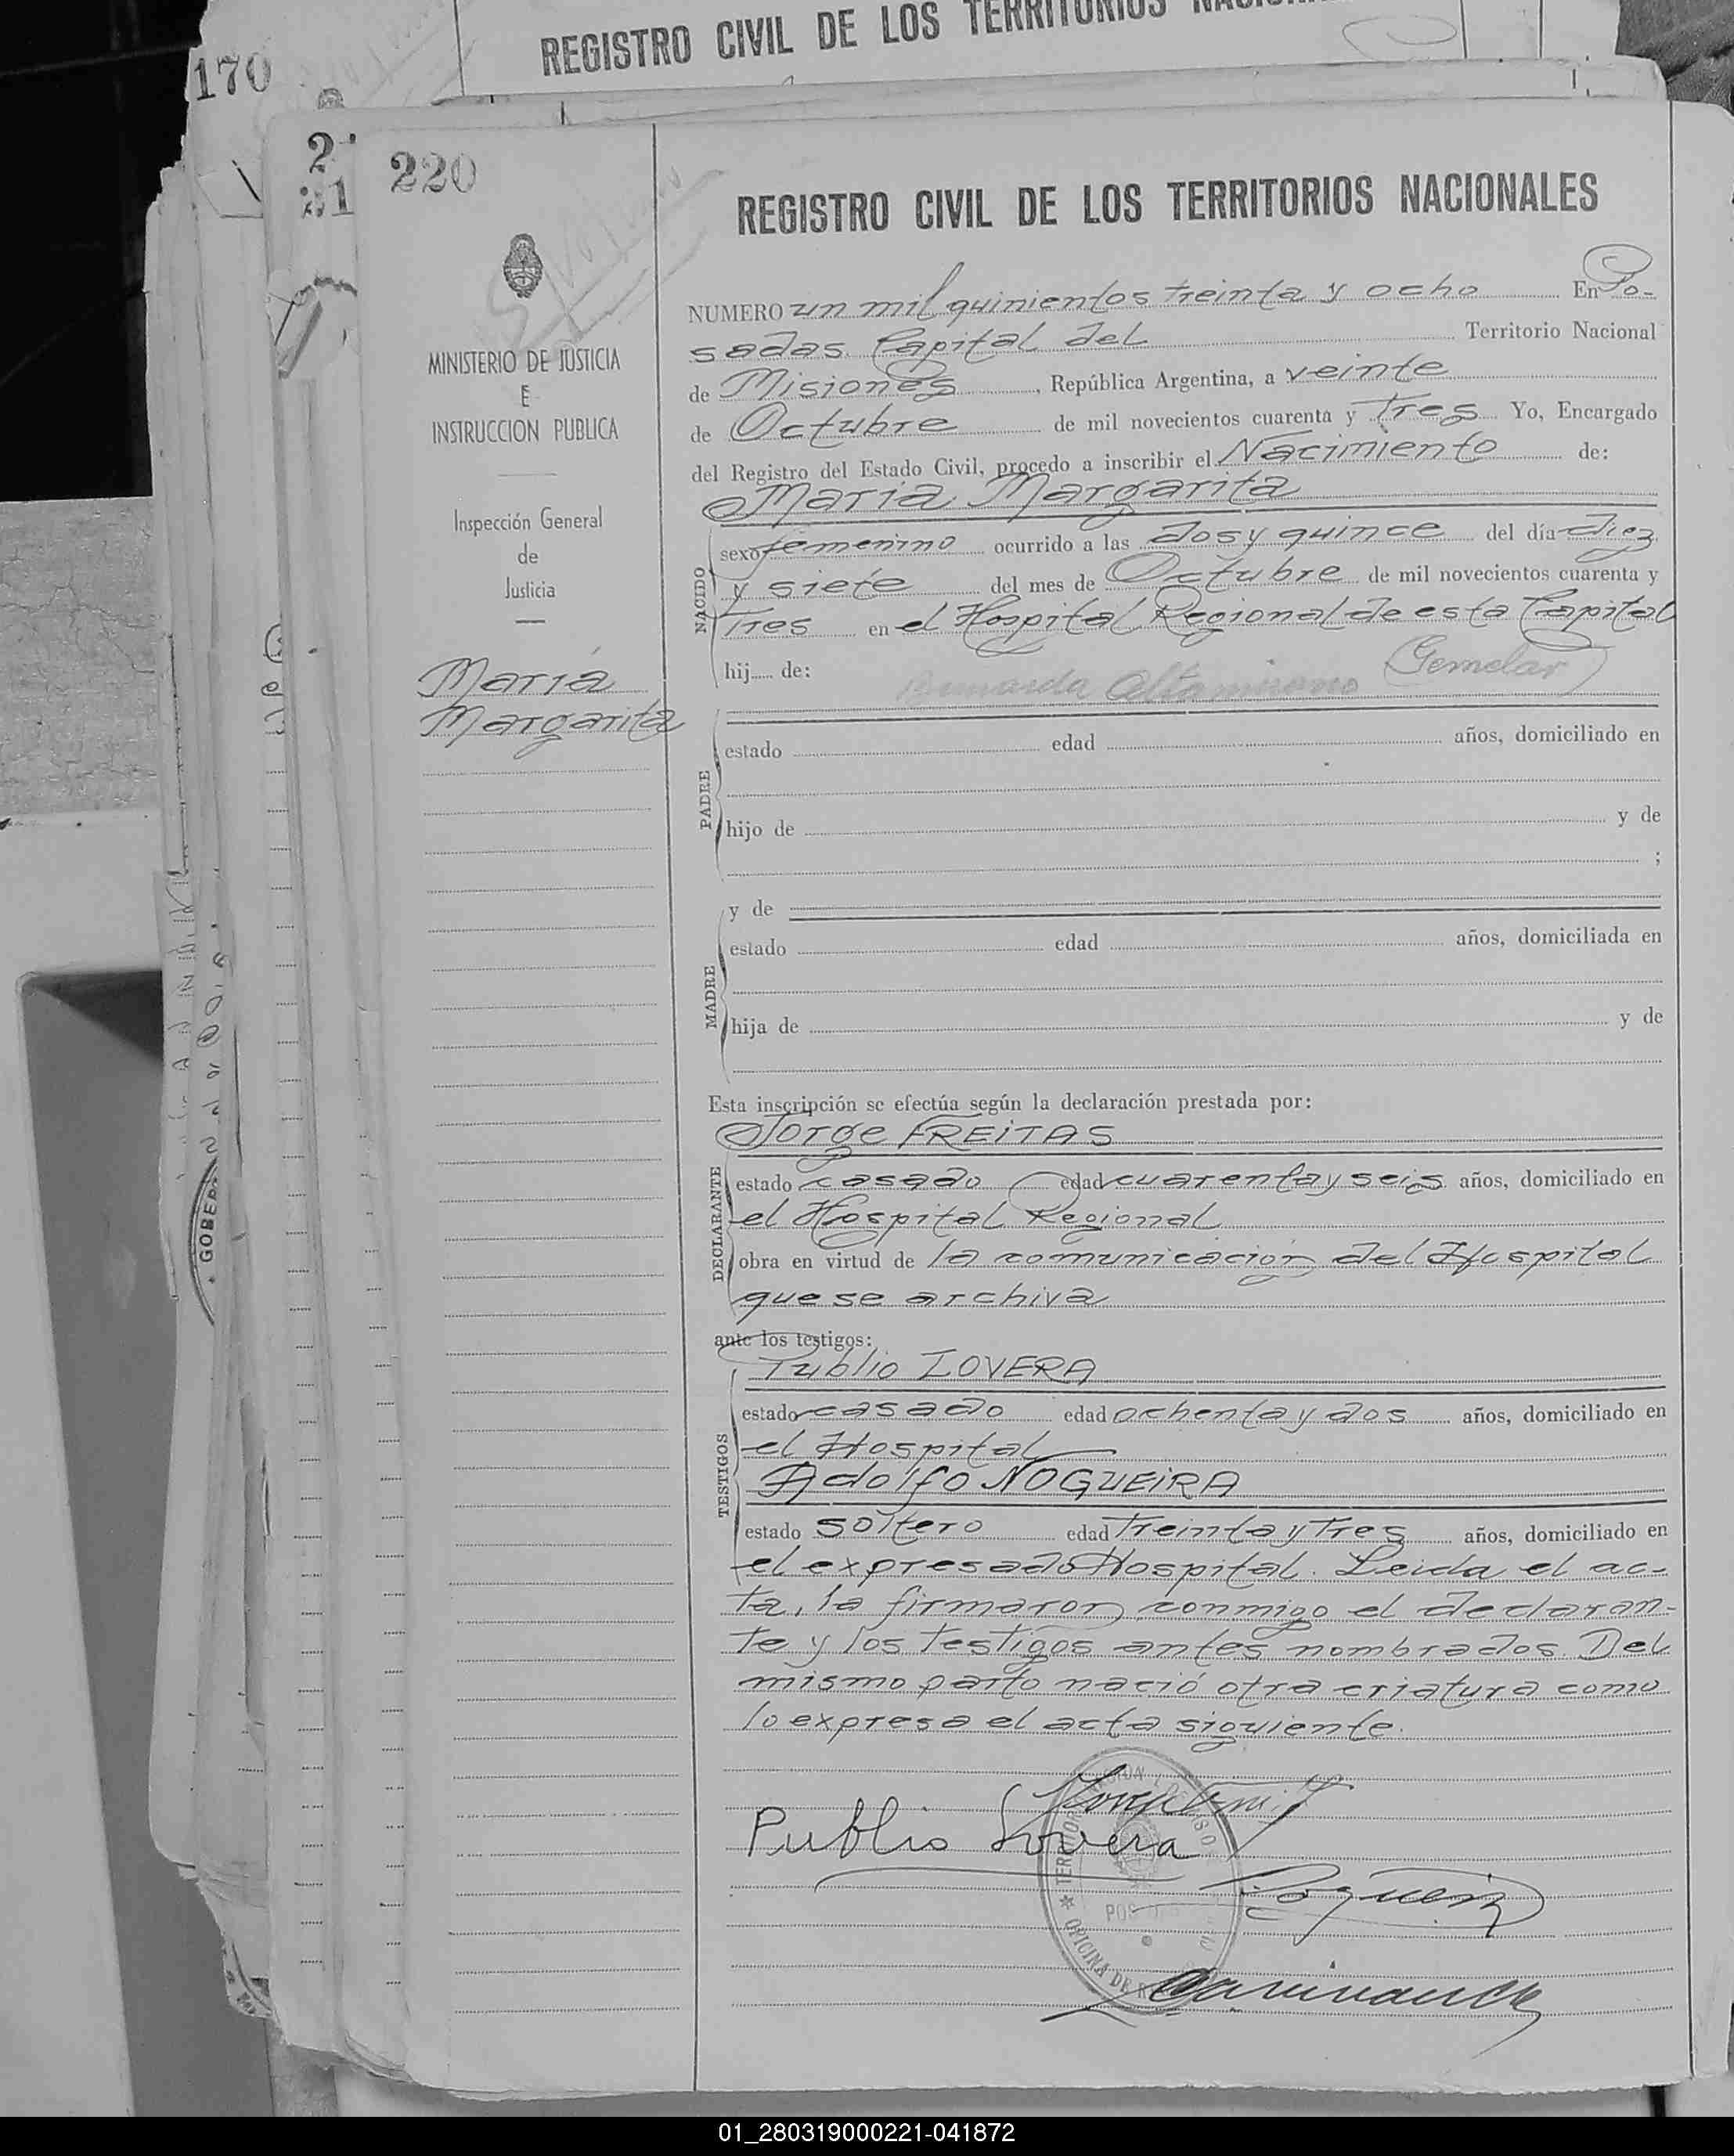 REGISTRO CIVIL DE LOS TERRITORIOS
170
2
31
220
REGISTRO CIVIL DE LOS TERRITORIOS NACIONALES
MINISTERIO DE JUSTICIA
E
INSTRUCCION PUBLICA
Inspección General
de
Justicia
María
Margarita
NUMERO un mil quinientos treinta y ocho En Po-
sadas Capital del Territorio Nacional
de Misiones, República Argentina, a veinte
de Octubre de mil novecientos cuarenta y Tres Yo, Encargado
del Registro del Estado Civil, procedo a inscribir el Nacimiento de:
María Margarita
NACIDO
sexo femenino ocurrido a las dos y quince del día diez
y siete del mes de Octubre de mil novecientos cuarenta y
Tres en el Hospital Regional de esta Capital
hij de: Altamirano (Gemelar)
PADRE
estado edad años, domiciliado en
hijo de y de
;
MADRE
y de
estado edad años, domiciliada en
hija de y de
Esta inscripción se efectúa según la declaración prestada por:
Jorge FREITAS
DECLARANTE
estado casado edad cuarenta y seis años, domiciliado en
el Hospital Regional
obra en virtud de la comunicación del Hospital
que se archiva
ante los testigos:
Publio LOVERA
TESTIGOS
estado casado edad ochenta y dos años, domiciliado en
el Hospital
Adolfo NOGUEIRA
estado soltero edad Treinta y Tres años, domiciliado en
el expresado Hospital. Leida el ac-
ta, la firmaron conmigo el declaran-
te y los testigos antes nombrados. Del
mismo parto nació otra criatura como
lo expresa el acta siguiente.
Publio Lovera
OFICINA DE
GOBER
01_280319000221-041872